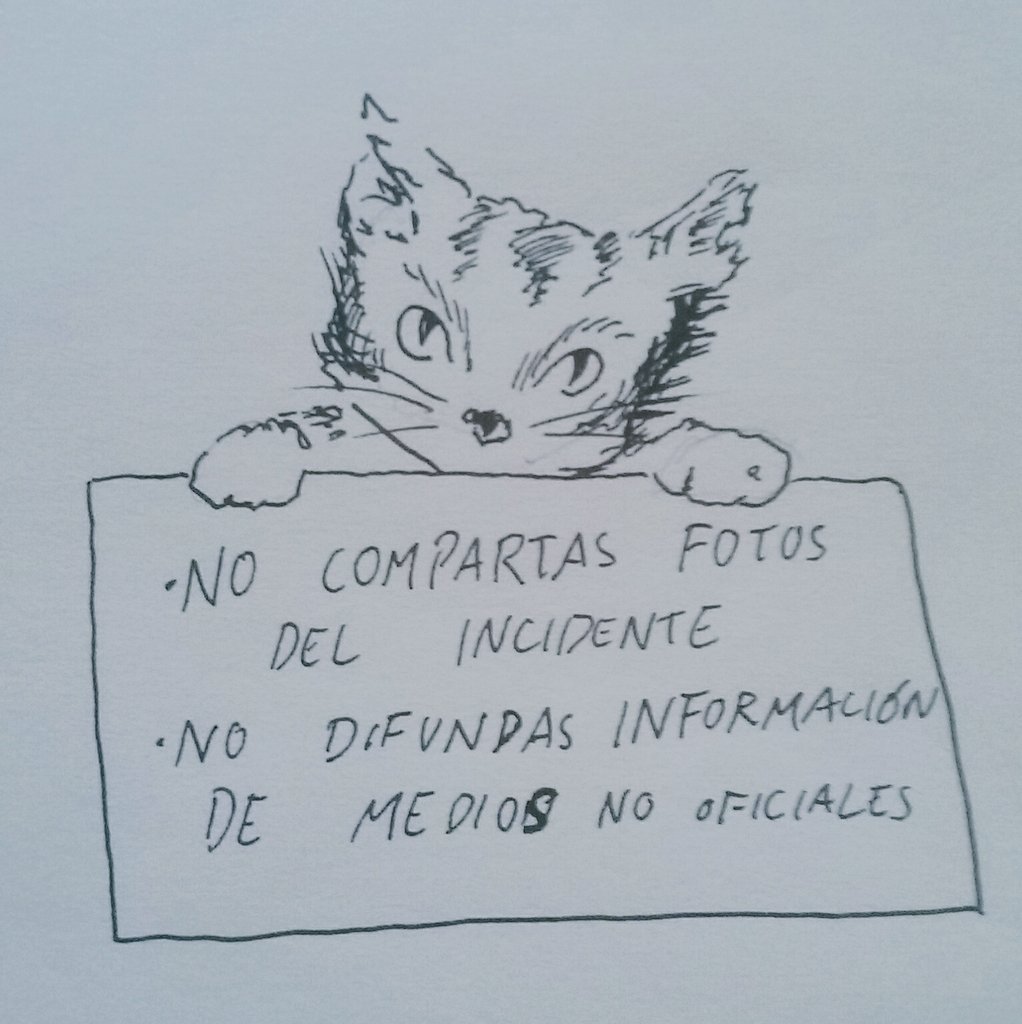 ·NO COMPARTAS FOTOS
DEL INCIDENTE
·NO DIFUNDAS INFORMACIÓN
DE MEDIOS NO OFICIALES